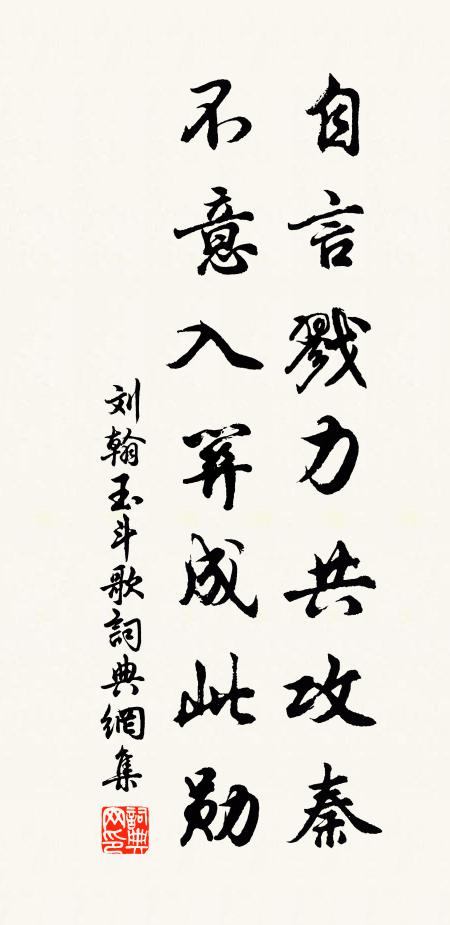 自言戮力共攻秦
不意入关成此勋
刘翰玉斗歌詞典網集
詞典网印